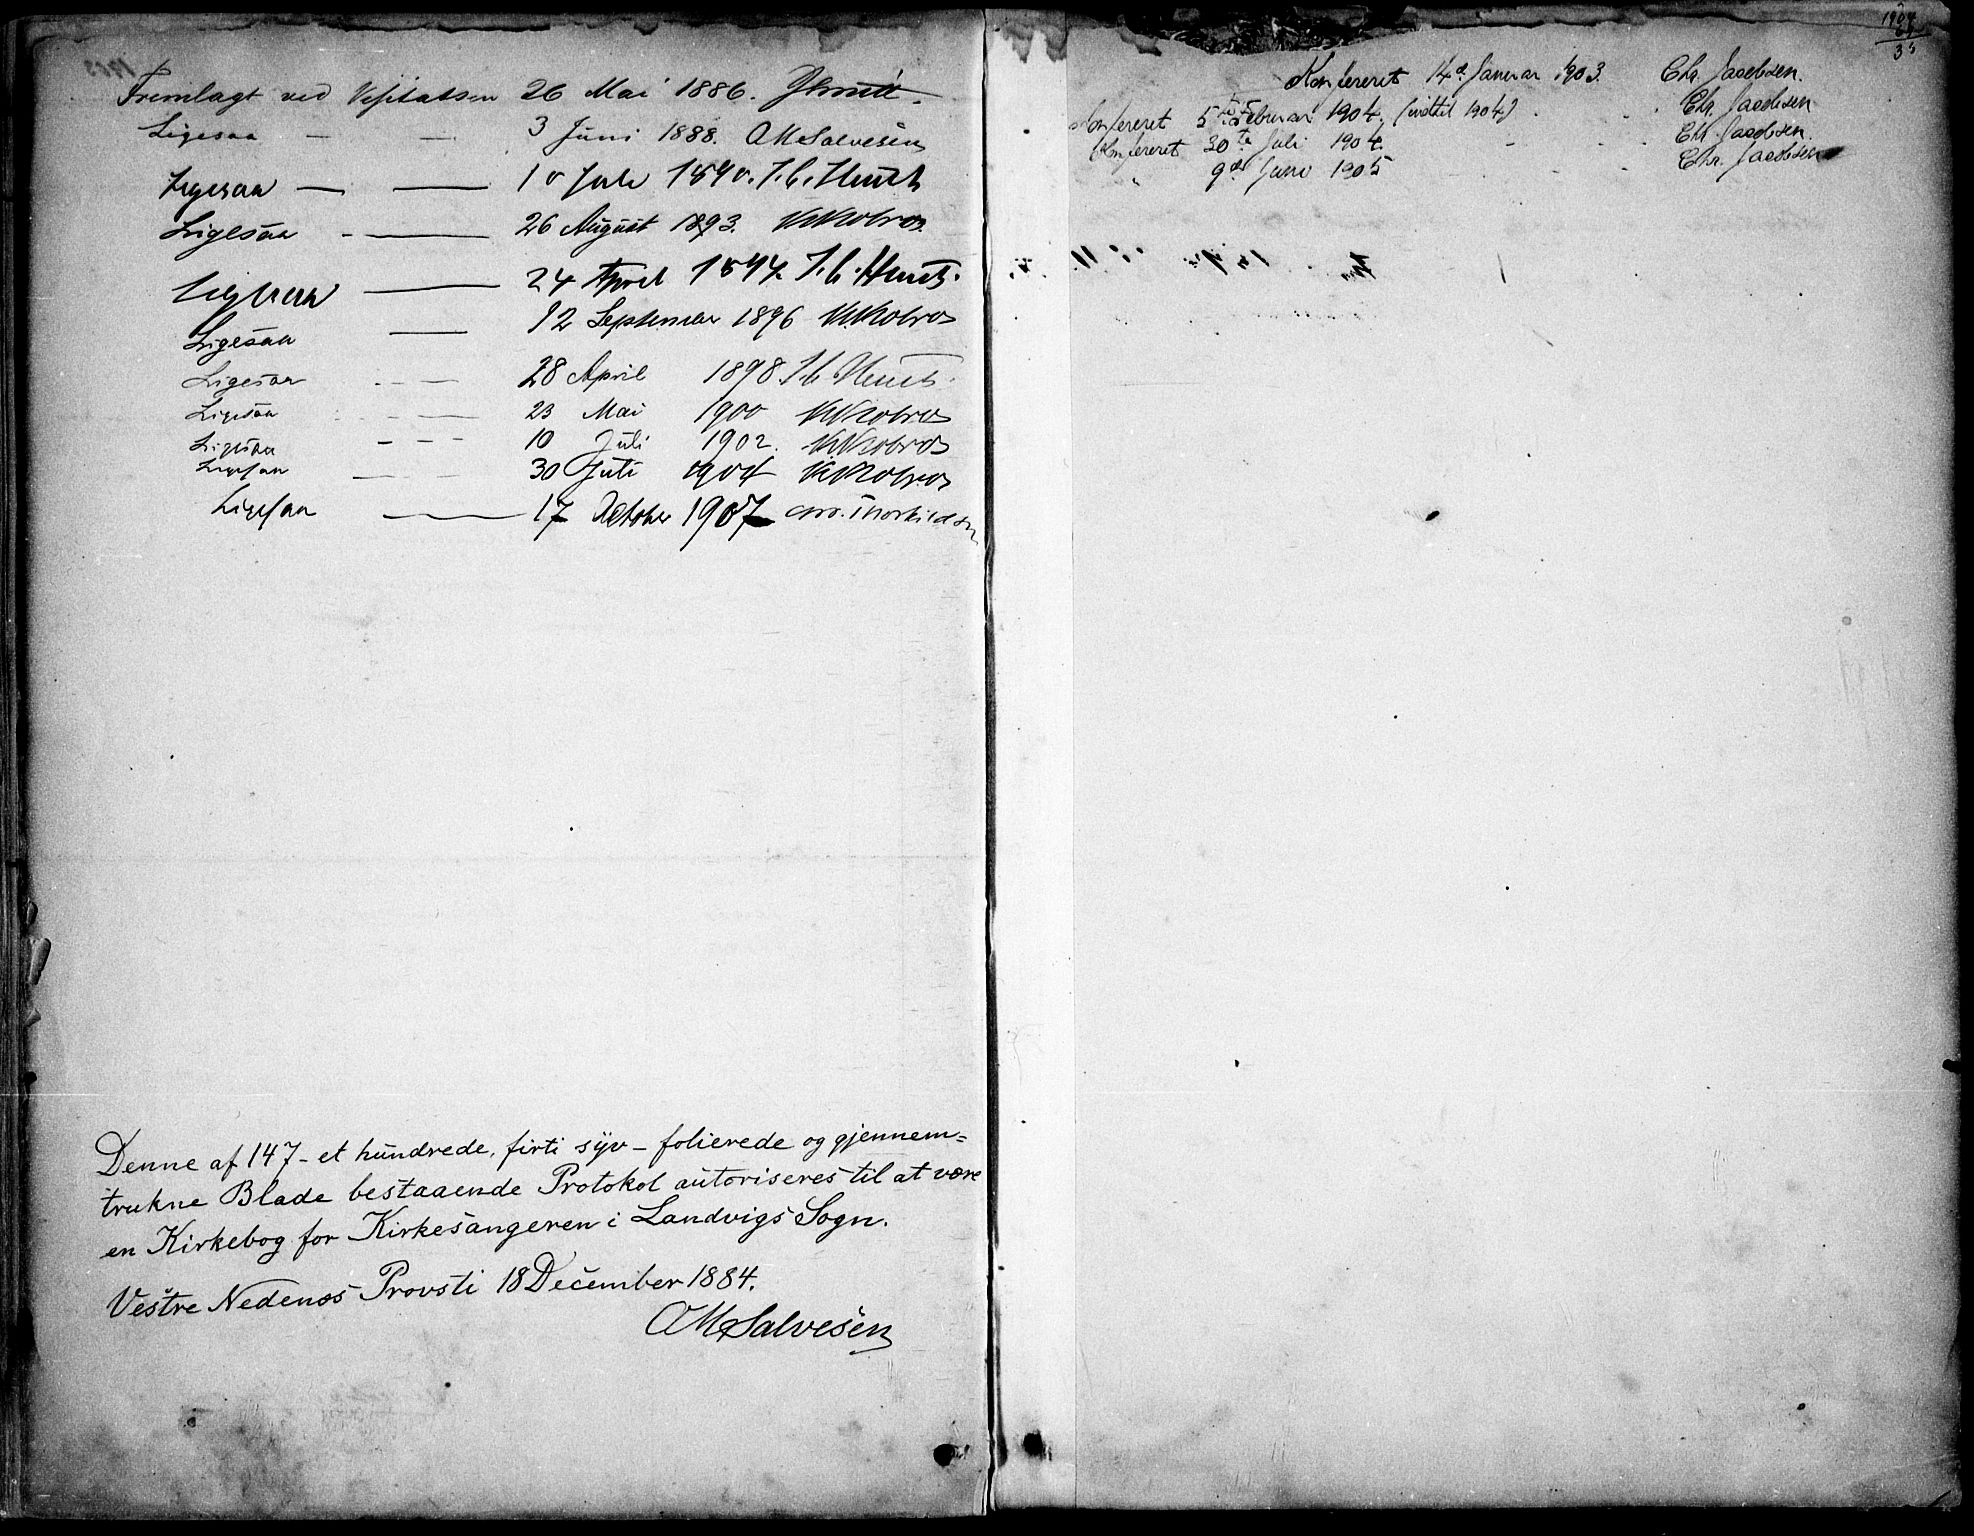 Fremlagt ved Visitatsen 26 Mai 1886.
Ligesaa — — 3 Juni 1888. OMSalvesen
Ligesaa — — 10 Juli 1890. J. C. Heuch
Ligesaa - — 26 August 1893. KKKobro
Ligesaa — 24 April 1894. J. C. Heuch.
Ligesaa — 12 September 1896
Ligesaa - - — 28 April 1898. J. C. Heuch.
Ligesaa - - — 23 Mai 1900
Ligesaa - - - 10 Juli 1902.
Ligesaa — - — 30 Juli 1904
Ligesaa — 17 October 1907 Chr. Thorkildsen
Denne af 147 - et hundrede, firti syv - folierede og gjennem=
trukne Blade bestaaende Protokol autoriseres til at være
en Kirkebog for Kirkesangeren i Landvigs Sogn.
Vestre Nedenæs Provsti 18 December 1884.
OMSalvesen
1904
35
Konfereret 14d. Januar 1903. Chr. Jacobsen.
Konfereret 5te Februar 1904. (indtil 1904) Chr. Jacobsen
Konfereret 30te Juli 1904. - - - Chr. Jacobsen.
" 9de Juni 1905 Chr. Jacobsen